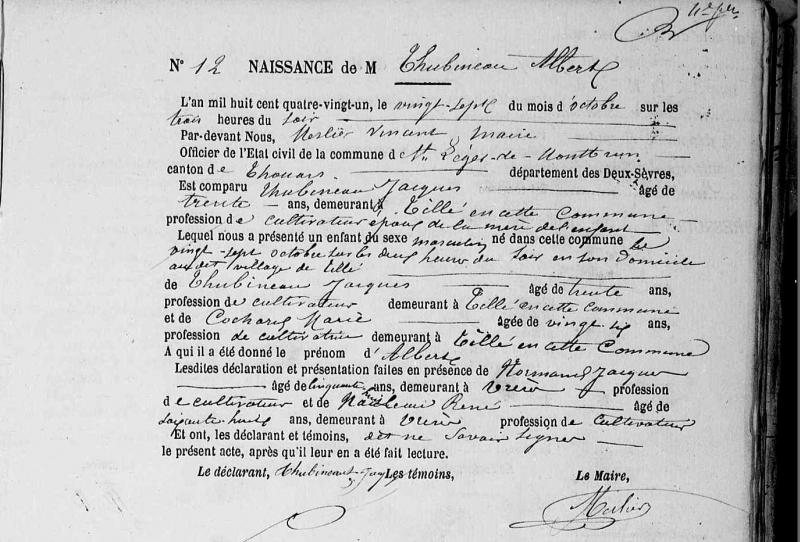 N° 12 NAISSANCE de M Thubineau Albert
L'an mil huit cent quatre-vingt-un, le vingt-sept du mois d'octobre sur les
trois heures du soir
Par-devant Nous, Merlier Vincent, Maire
Officier de l'Etat civil de la commune de St Léger-de-Montbrun
canton de Thouars département des Deux-Sèvres,
Est comparu Thubineau Jacques âgé de
trente ans, demeurant à Tillé en cette Commune
profession de cultivateur époux de la mère de l'enfant
Lequel nous a présenté un enfant du sexe masculin né dans cette commune le
vingt-sept octobre sur les deux heures du soir en son domicile
au dit village de Tillé
de Thubineau Jacques âgé de trente ans,
profession de cultivateur demeurant à Tillé en cette commune
et de Cochard Marie âgée de vingt six ans,
profession de cultivatrice demeurant à Tillé en cette Commune
A qui il a été donné le prénom d'Albert
Lesdites déclaration et présentation faites en présence de Normand Jacques
âgé de cinquante ans, demeurant à Vrère profession
de cultivateur et de René âgé de
soixante huit ans, demeurant à Vrère profession de Cultivateur
Et ont, les déclarant et témoins, dit ne savoir signer
le présent acte, après qu'il leur en a été fait lecture.
Le déclarant, Thubineau Les témoins, Le Maire,
Merlier